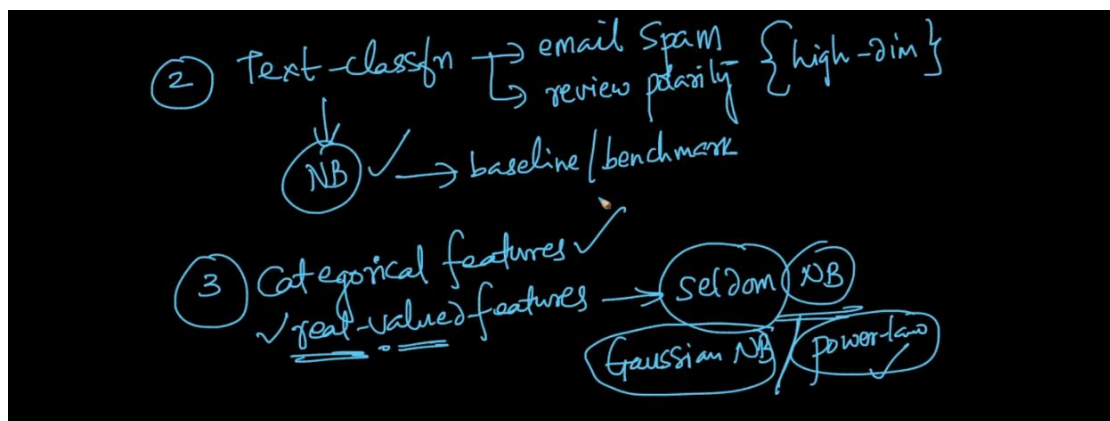 2 Text-classfn → email Spam {high-dim}
↳ review polarity
↓
NB ✓ → baseline/benchmark
3 Categorical features ✓
✓ real-valued features → seldom NB
Gaussian NB / power-law ✓